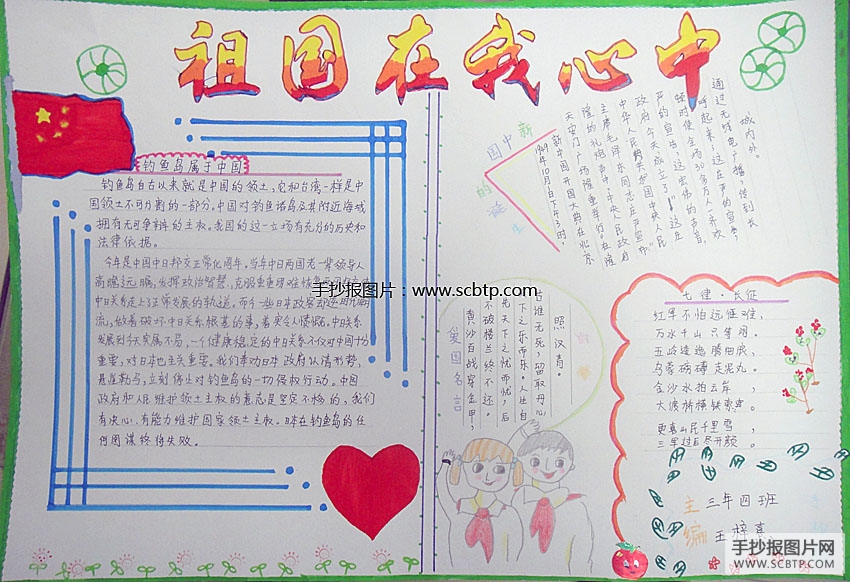 祖国在我心中
钓鱼岛属于中国
钓鱼岛自古以来就是中国的领土,它和台湾一样是中
国领土不可分割的一部分。中国对钓鱼诸岛及其附近海域
拥有无可争辩的主权。我国的这一立场有充分的历史和
法律依据。
今年是中国中日邦交正常化周年,当年中日两国老一辈领导人
高瞻远瞩,发挥政治智慧,克服重重
中日关系走上了正常发展的轨道。而今一些日本政客却逆时代潮
流,做着破坏中日关系根基的事,着实令人愤慨。中日关系
发展到今天实属不易,一个健康稳定的中日关系不仅对中国十分
重要,对日本也至关重要。我们奉劝日本政府认清形势,
悬崖勒马,立刻停止对钓鱼岛的一切侵权行动。中国
政府和人民维护领土主权的意志是坚定不移的,我们
有决心、有能力维护国家领土主权。日本在钓鱼岛的任
何图谋终将失败。
新中国
的诞生
1949年10月1日下午3时,
新中国开国大典在北京
天安门广场隆重举行在隆
隆的礼炮声中中央人民政府
主席毛泽东同志庄严宣布“
中华人民共和国中央人民
政府今天成立了!”这庄
严的宣告,这宏伟的声音,
顿时使全场30多万人一齐欢
呼起来,这庄严的宣告,
通过无线电广播,传到长
城内外。
爱国名言
黄沙百战穿金甲,
不破楼兰终不还。
先天下之忧而忧,后
天下之乐而乐。人生自
古谁无死,留取丹心
照汗青。
七律·长征
红军不怕远征难,
万水千山只等闲。
五岭逶迤腾细浪,
乌蒙磅礴走泥丸。
金沙水拍云岸
大渡桥横铁索寒。
更喜岷山千里雪,
三军过后尽开颜。
主编
三年四班
手抄报图片:www.scbtp.com
手抄报图片网
WWW.SCBTP.COM